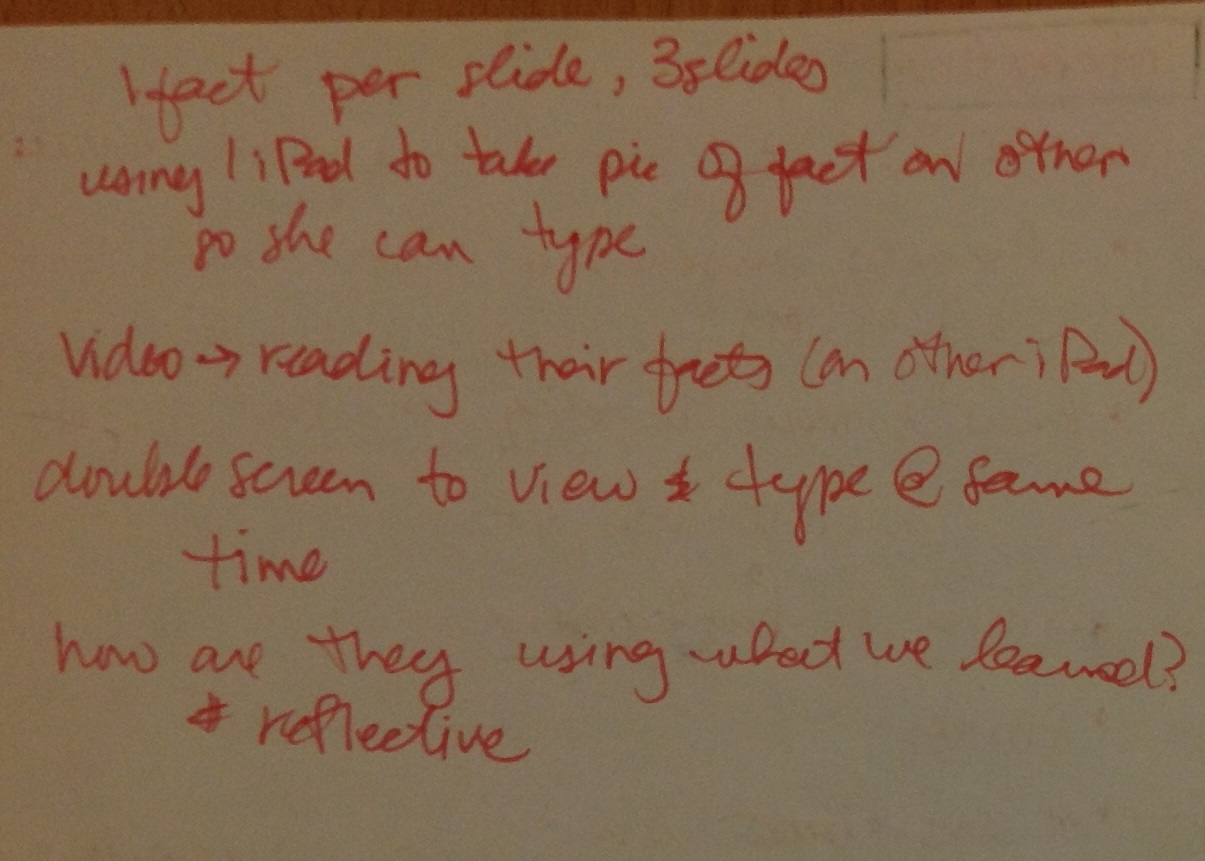 1 fact per slide, 3 slides
using 1 iPad to take pic of fact on other
so she can type
Video → reading their facts (on other iPad)
double screen to view & type @ same
time
how are they using what we learned?
* reflective